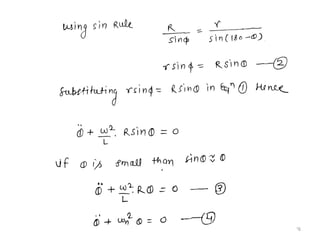 using sin Rule R/sinφ = r/sin(180-θ)
rsinφ = Rsinθ —②
Substituting rsinφ = Rsinθ in Eqⁿ ① Hence
θ̈ + ω²/L . Rsinθ = 0
if θ is small than sinθ ≈ θ
θ̈ + ω²/L . Rθ = 0 — ③
θ̈ + ωn² θ = 0 —④